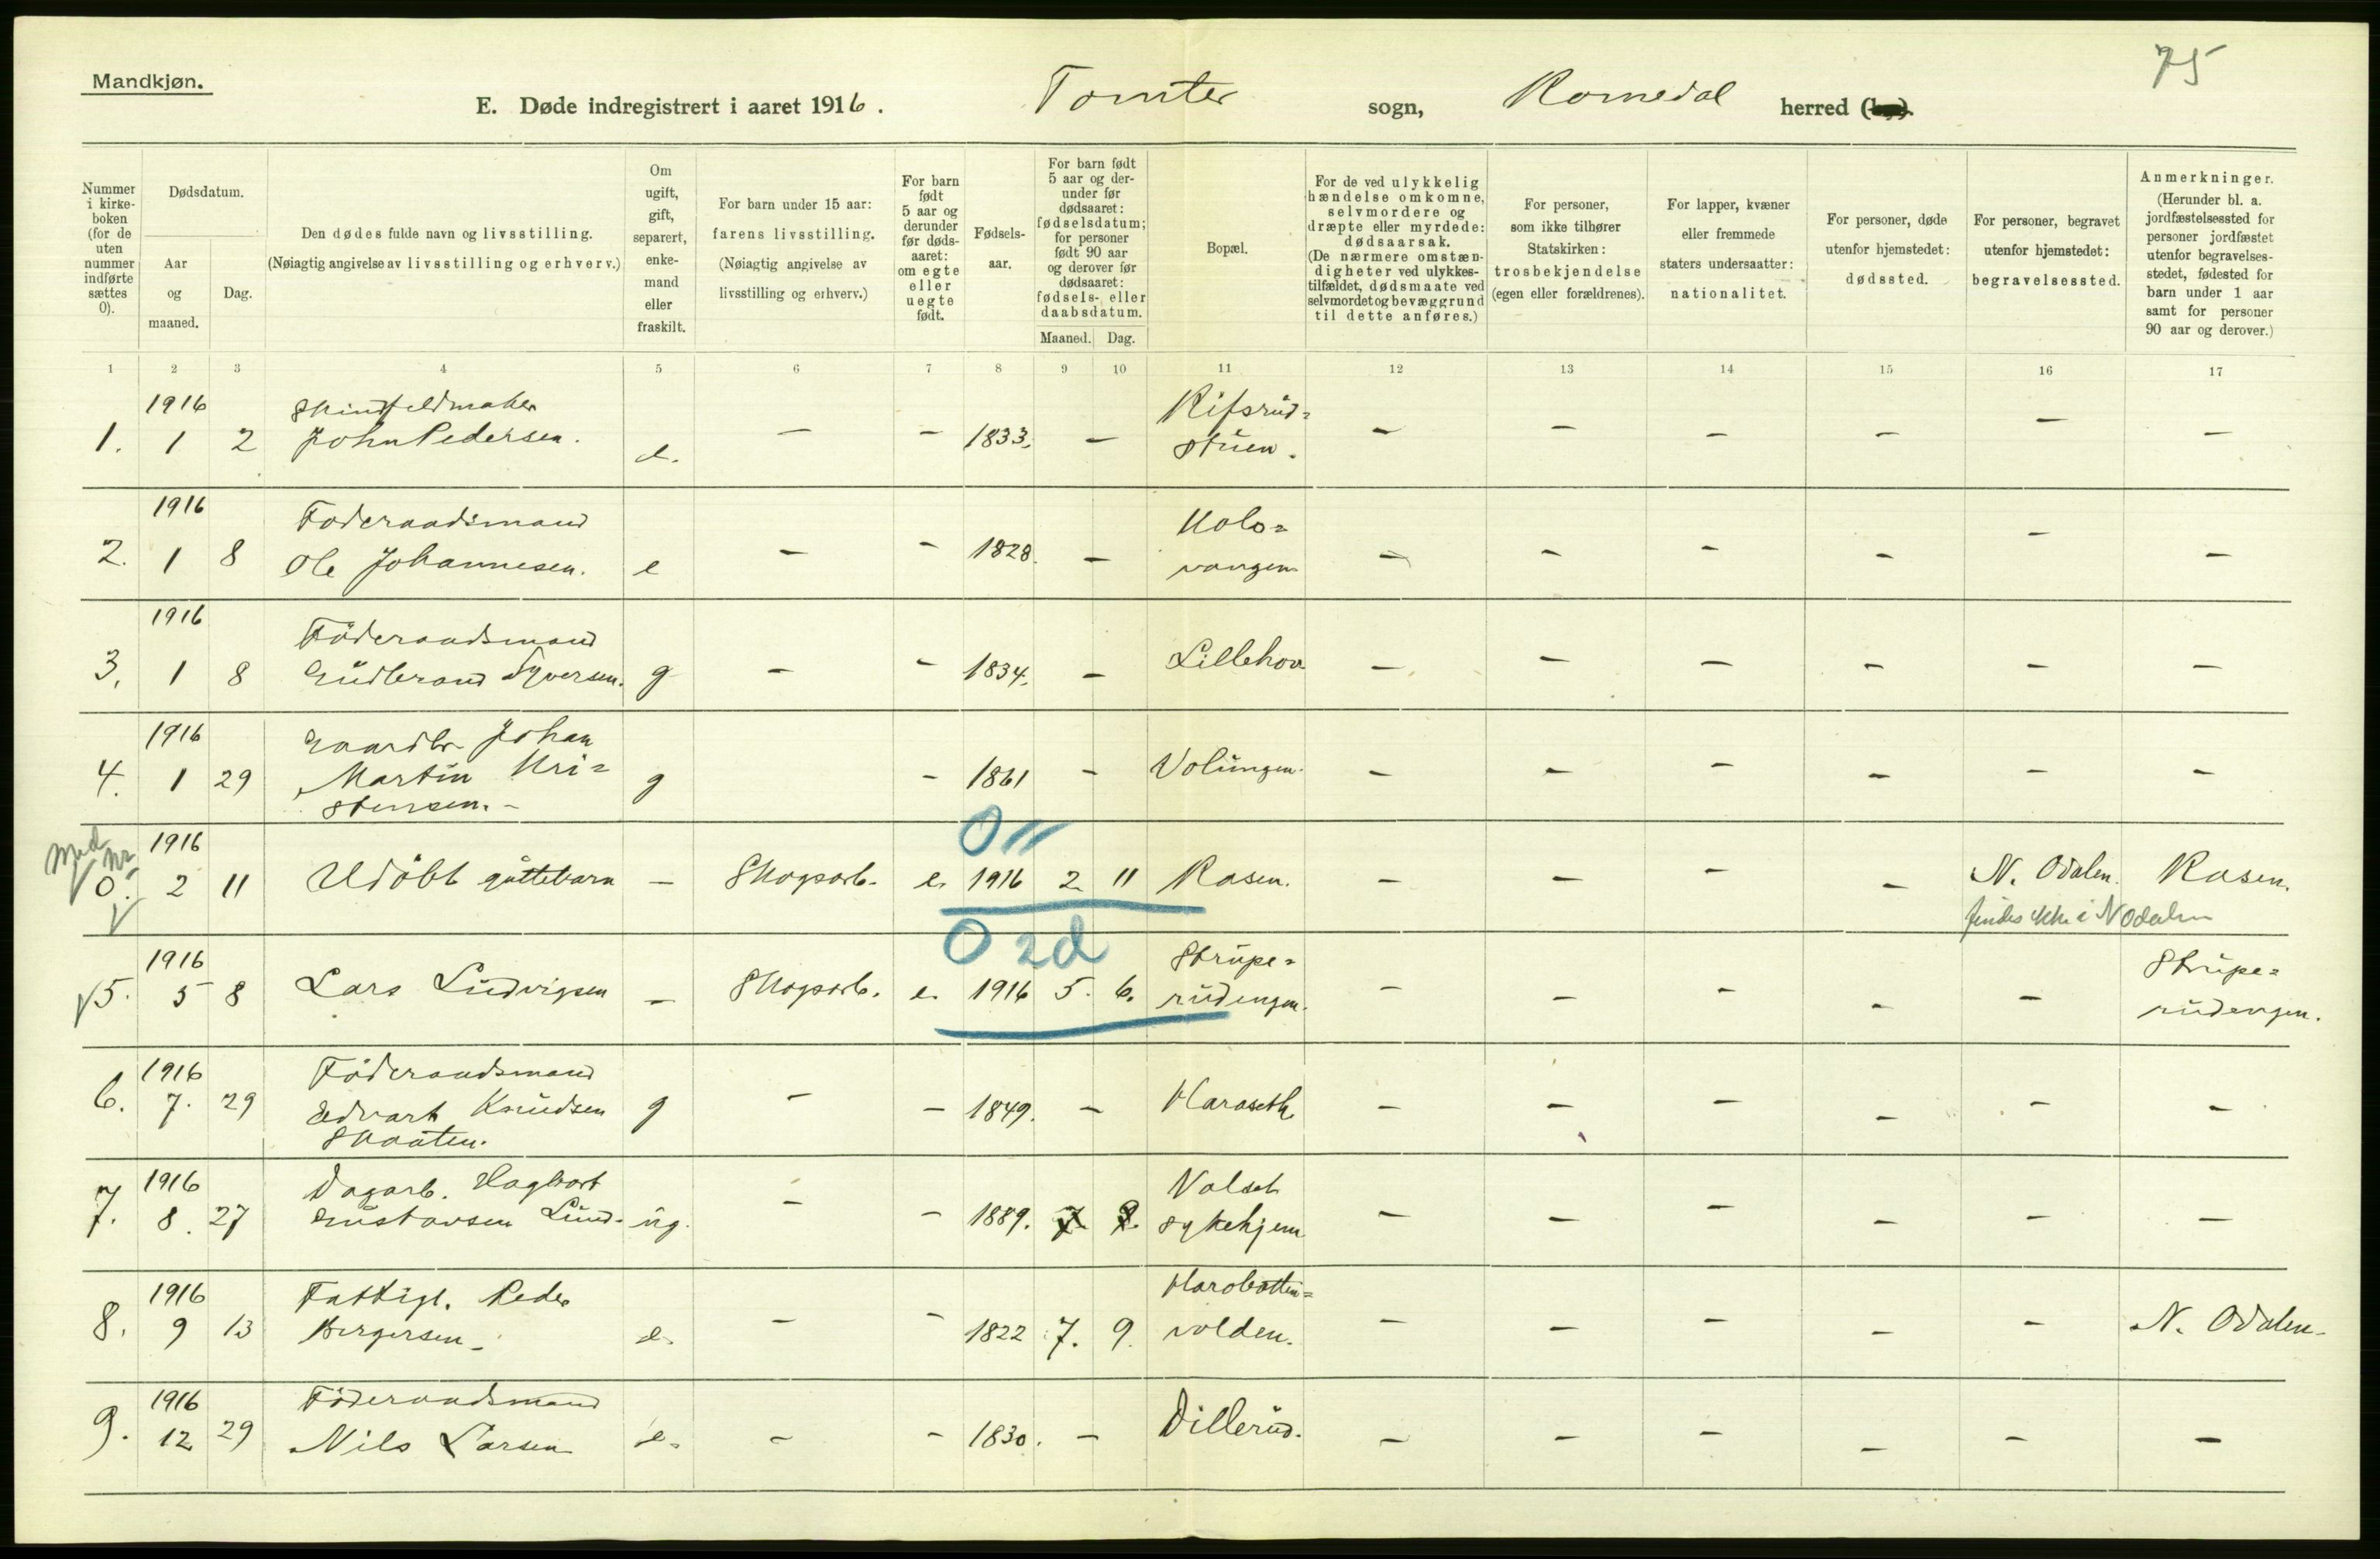 75
Mandkjøn.
E. Døde indregistrert i aaret 1916. Tomter sogn, Romedal herred (by).
Nummer i kirke-boken (for de uten nummer indførte sættes 0).
Dødsdatum.
Aar og maaned.
Dag.
Den dødes fulde navn og livsstilling.
(Nøiagtig angivelse av livsstilling og erhverv.)
Om ugift, gift, separert, enke-mand eller fraskilt.
For barn under 15 aar: farens livsstilling.
(Nøiagtig angivelse av livsstilling og erhverv.)
For barn født 5 aar og derunder før døds-aaret: om egte eller uegte født.
Fødsels-aar.
For barn født 5 aar og der-under før dødsaaret: fødselsdatum; for personer født 90 aar og derover før dødsaaret: fødsels- eller daabsdatum.
Maaned. Dag.
Bopæl.
For de ved ulykkelig hændelse omkomne, selvmordere og dræpte eller myrdede: dødsaarsak.
(De nærmere omstæn-digheter ved ulykkes-tilfældet, dødsmaate ved selvmordet og bevæggrund til dette anføres.)
For personer, som ikke tilhører Statskirken: trosbekjendelse (egen eller forældrenes).
For lapper, kvæner eller fremmede staters undersaatter: nationalitet.
For personer, døde utenfor hjemstedet: dødssted.
For personer, begravet utenfor hjemstedet: begravelsessted.
Anmerkninger.
(Herunder bl. a. jordfæstelsessted for personer jordfæstet utenfor begravelses-stedet, fødested for barn under 1 aar samt for personer 90 aar og derover.)
1 2 3 4 5 6 7 8 9 10 11 12 13 14 15 16 17
1916 Skindfeldmaker Rifsrud=
1. 1 2 John Pedersen. e. — — 1833. — stuen. — — — — — —
1916 Foderaadsmand Kolo=
2. 1 8 Ole Johannesen. e — — 1828. — vangen — — — — — —
1916 Föderaadsmand
3. 1 8 Gudbrand Syversen. g — — 1834. — Lillehov — — — — — —
1916 Gaardbr. Johan
4. 1 29 Martin Kri= g — 1861 — Volungen. — — — — — —
stensen. —
1916 0 11
0. 2 11 Udöbt guttebarn — Skogsarb. e. 1916 2 11 Rasen. — — — — N. Odalen. Rasen.
findes ikke i N Odalen
1916 0 2d Strupe= Strupe=
5. 5 8 Lars Ludvigsen — Skogsarb. e. 1916 5. 6. rudengen. — — — — — rudengen.
1916 Föderaadsmand
6. 7. 29 Edvart Knudsen g — — 1849. — Haraseth — — — — — —
Skaaten.
1916 Dagarb. Hagbart Valset
7. 8. 27 Gustavsen Lund. ug. — — 1889. 7 8. sykehjem — — — — — —
1916 Fattigl. Peder Harobatten=
8. 9 13 Bergersen. e. — — 1822 7. 9. volden. — — — — — N. Odalen.
1916 Föderaadsmand
9. 12 29 Nils Larsen e. — — 1830. — Dillerud. — — — — — —